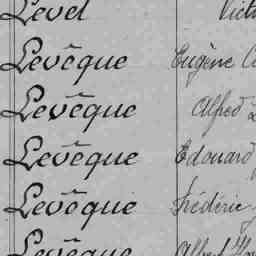 Level Vict
Levêque Eugène
Levêque Alfred
Levêque Edouard
Levêque Frédéric
Levêque Albert